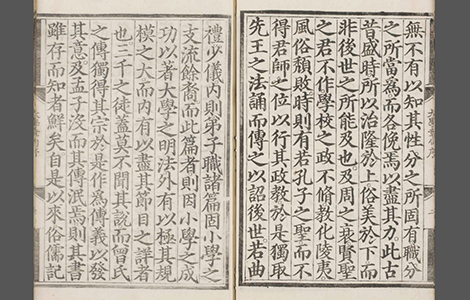 無不有以知其性分之所固有職分
之所當為而各俛焉以盡其力此古
昔盛時所以治隆於上俗美於下而
非後世之所能及也及周之衰賢聖
之君不作學校之政不修教化陵夷
風俗頹敗時則有若孔子之聖而不
得君師之位以行其政教於是獨取
先王之法誦而傳之以詔後世若曲
禮少儀內則弟子職諸篇固小學之
支流餘裔而此篇者則因小學之成
功以著大學之明法外有以極其規
模之大而內有以盡其節目之詳者
也三千之徒蓋莫不聞其說而曾氏
之傳獨得其宗於是作為傳義以發
其意及孟子沒而其傳泯焉則其書
雖存而知者鮮矣自是以來俗儒記